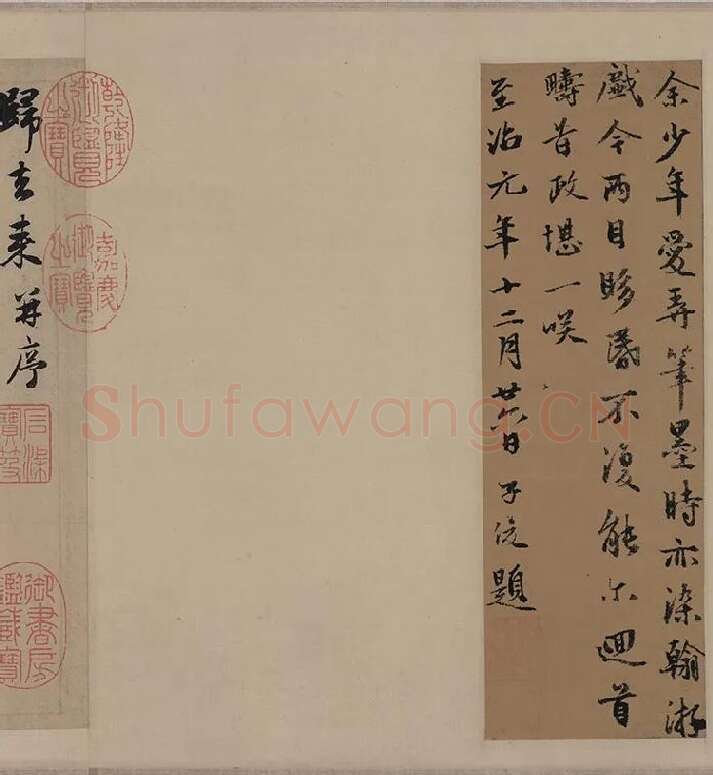 余少年愛弄筆墨時亦染翰游
戲今兩目眵昏不復能尔迴首
疇昔政堪一咲
至治元年十二月廿六日子俊題
歸去来并序
乾隆御覽之寶
嘉慶御覽之寶
石渠寶笈
御書房鑑藏寶
Shufawang.CN